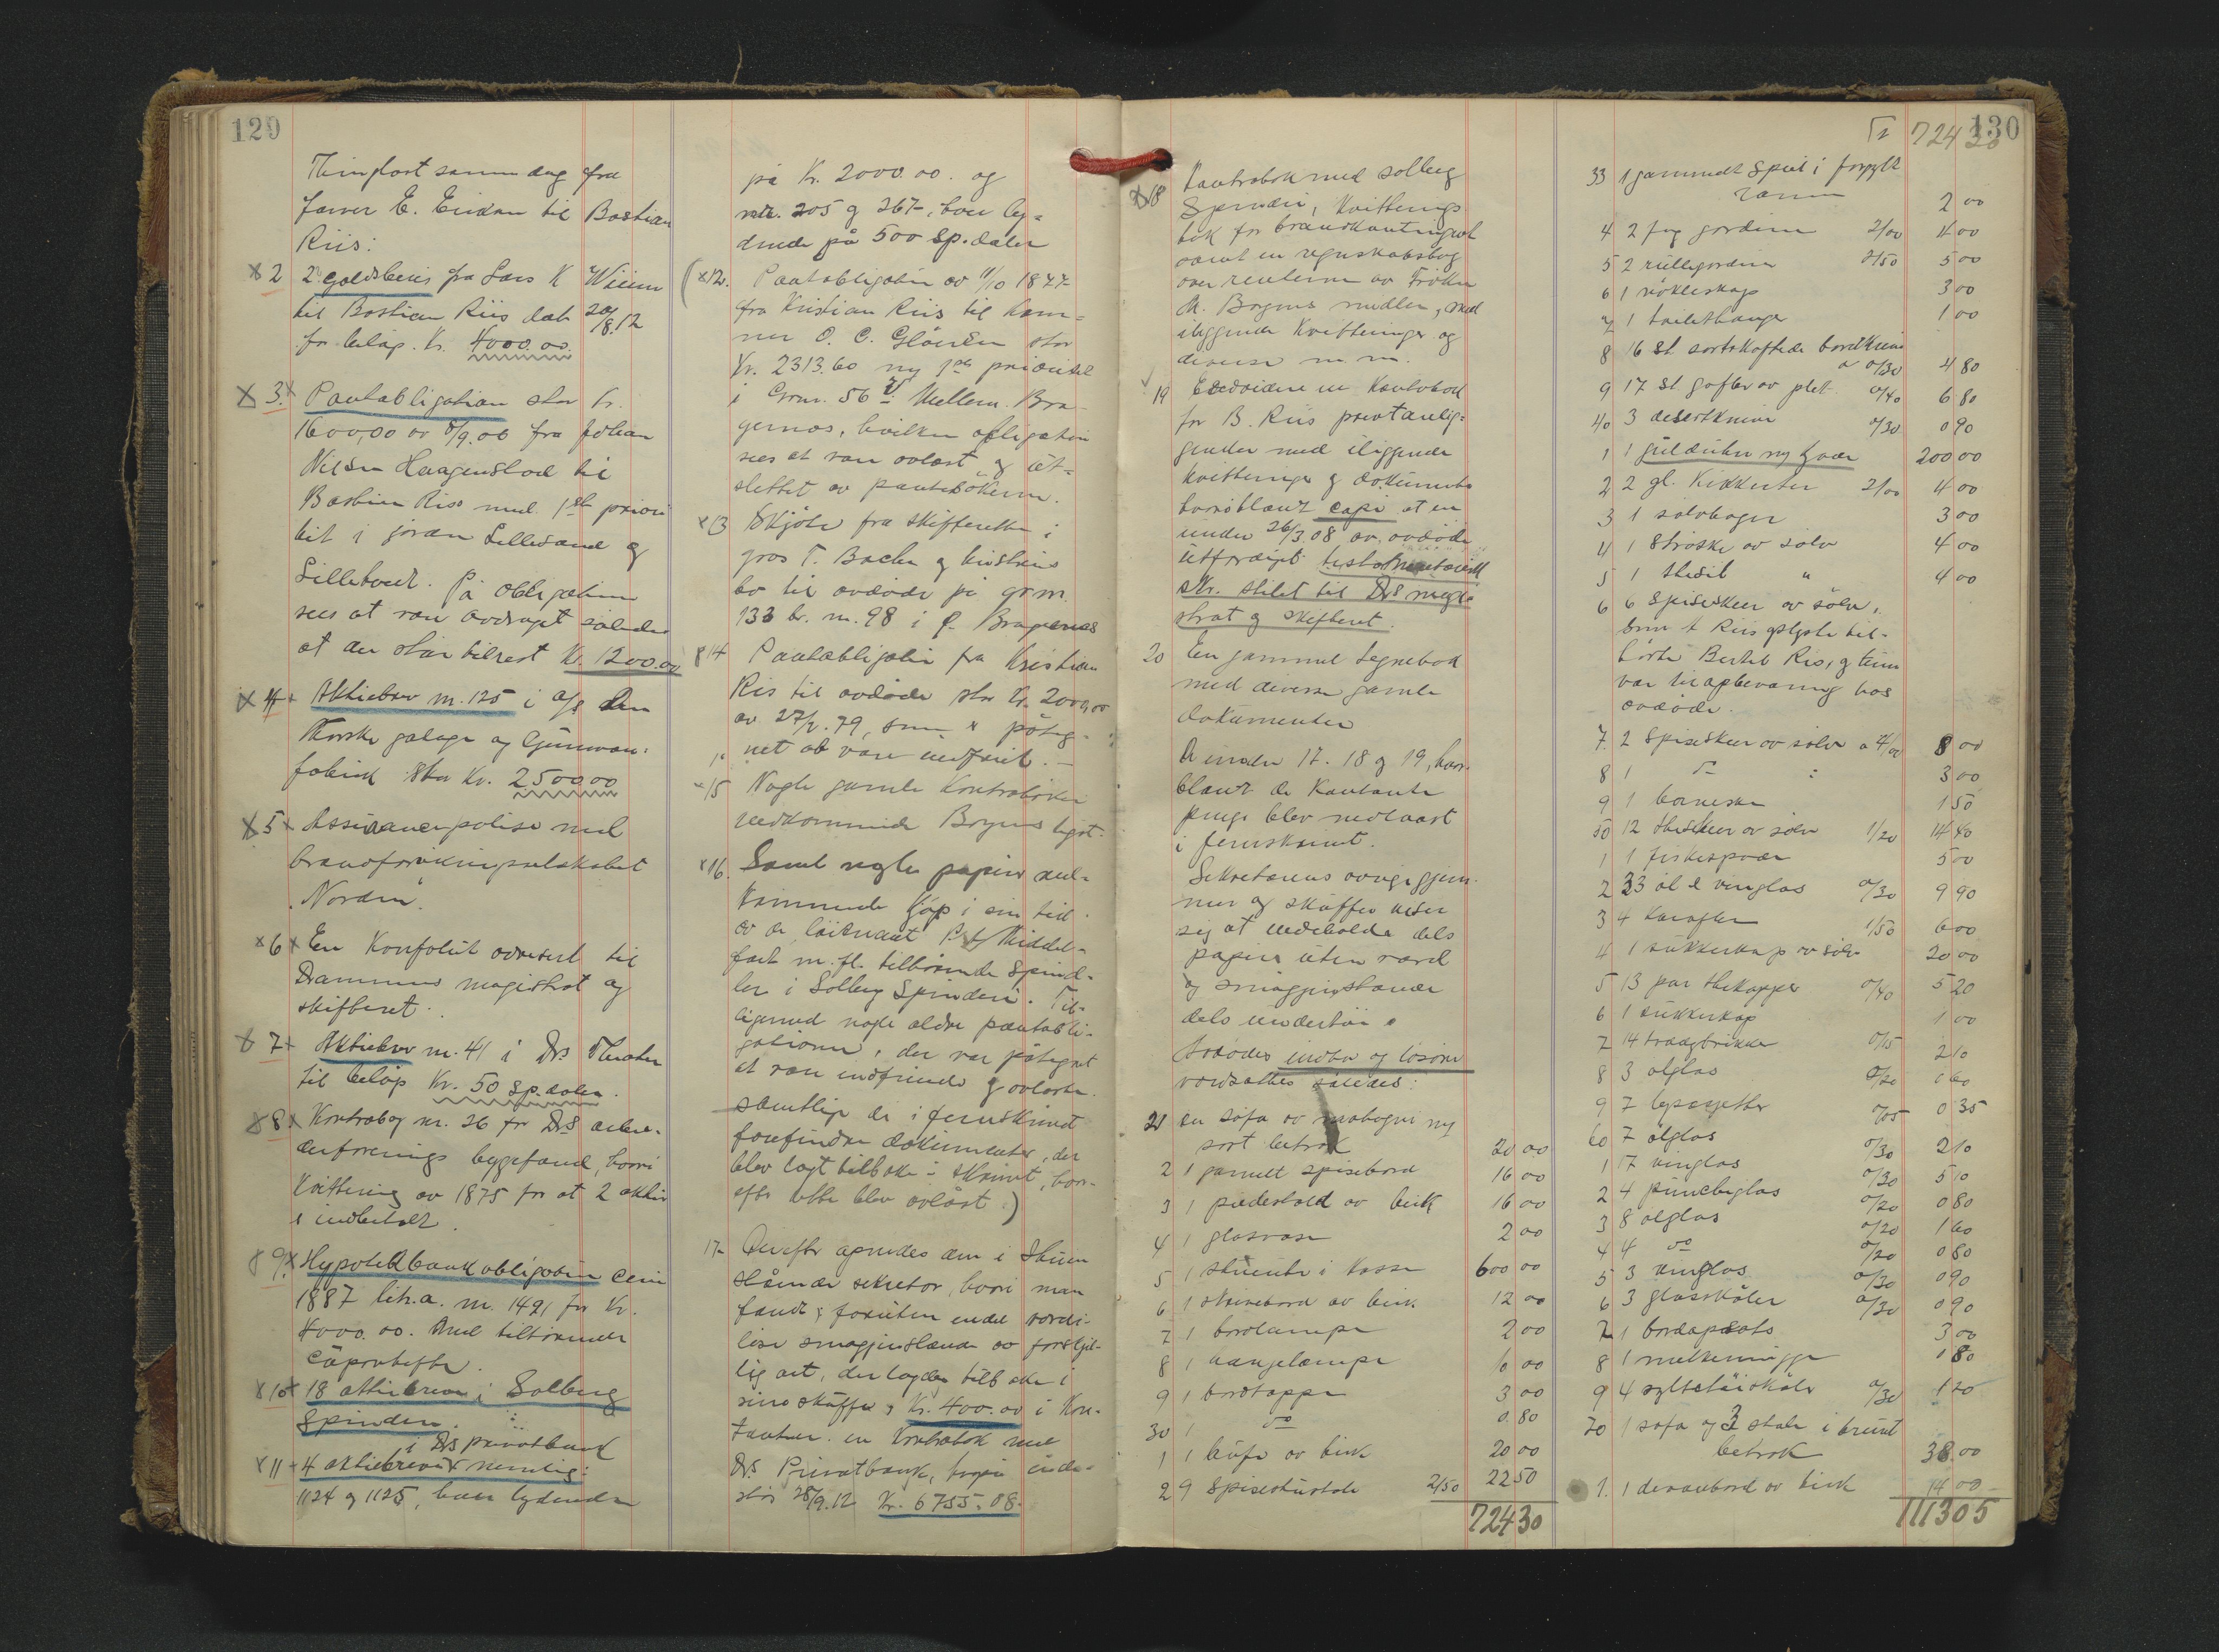 129
Thinglæst samme dag fra
farver E. Eriksen til Bastian
Riis:
x 2 2 gjeldsbevis fra Lars K
til Bastian Riis dat 20/8.12
for beløp. Kr. 4000.00.
x 3.x Pantobligation stor kr.
1600,00 av 8/9.06 fra Johan
Nilsen Haagenslad til
Bastian Riis med 1ste priori
tet i jorden Lillesand og
Lilletvedt. På obligationen
sees at være avdraget således
at der står tilrest Kr. 1200.00
x 4 x Aktiebrev nr. 125 i a/s Den
Norske galage og Gummi
fabrik stor Kr. 2500.00
x 5 x Assurancepolise med
brandforsikringsselskabet
"Norden".
x 6 x En Konvolut adressert til
Drammens magistrat og
skifteret.
x 7 x Aktiebrev nr. 41 i Drs Theater
til beløp Kr. 50 sp.daler.
x 8 x Kontrabog nr. 26 for Drs arbei-
derforenings byggefond, hvori
Kvittering av 1875 for at 2 aktier
er indbetalt.
x 9.x Hypotekbankobligation
1887 litr.a. nr. 1491 for Kr.
4000.00. Med tilhørende
x 10 x 18 aktiebreve i Solberg
Spinderi.
i Drs privatbank
x 11 x 4 aktiebreve nemlig:
1124 og 1125, hver lydende
på Kr. 2000.00. og
nr. 205 og 267, hver ly-
dende på 500 sp.daler
(x 12. Pantobligation av 11/10 1877
fra Kristian Riis til kam-
ner O. C. stor
Kr. 2313.60 ny 1ste prioritet
i Grm. 56 Mellem. Bra
gernes, hvilken obligation
sees at være avløst og ut-
slettet av pantebøkerne.
x 13 Skjøte fra skifteretten i
gros T. Bache og hustrus
bo til avdøde på grm.
133 br. nr. 98 i Bragernes
x 14 Pantobligation fra Kristian
Riis til avdøde stor Kr. 2000,00
av 27/2.79, som er påteg-
net at være indfriet.
x 15 Nogle gamle Kontrabøker
vedkommende Bogens
x 16. Samt nogle papirer ved-
kommende kjøp i sin tid
av de løitnant Middel-
fart m.fl. tilhørende Spind-
ler i Solberg Spinderi. Til-
ligemed nogle ældre pantobli-
gationer, der var påtegnet
at være indfriede og avløste.
Samtlige de i jernskrinet
forefindne dokumenter, der
blev lagt tilbake i skrinet, hvor-
efter dette blev avlåst.)
17 Derefter åpnedes den i stuen
stående sekretær, hvori man
fandt, foruten endel værdi-
løse smågjenstande av forskjel-
lig art, der lagdes tilbake i
sine skuffer, Kr. 400.00 i Kon-
tanter. en Kontrabok med
Drs. Privatbank, hvori inde-
står 28/9.12 Kr. 6755.08.
x 18 Kontrabok med Solberg
Spinderi, Kvitterings
bok for brandkontingent
samt en regnskabsbog
over renterne av Frøken
M. Bogens midler, med
iliggende Kvitteringer og
diverse m.m.
19 Endvidere en Kontrabok
for B. Riis privatanlig-
gender med iliggende
kvitteringer og dokumenter
hvoriblant copi at en
under 26/3.08 av avdøde
utfærdiget testamentarisk
skr. stilet til Drs magi
strat og skifteret.
20 En gammel tegnebok
med diverse gamle
dokumenter
De under 17. 18 og 19, hvor-
blant de Kontante
penge blev nedlaast
i jernskrinet.
Sekretærens øvrige gjem-
mer og skuffer viser
sig at indeholde dels
papirer uten værd
og smågjenstande
dels undertøi.
Avdødes indbo og løsøre
værdsattes således:
21 en sofa av mahogni ny
sort betræk 20 00
2 1 gammelt spisebord 16 00
3 1 piedestald av birk 16 00
4 1 glasvase 2 00
5 1 stueuhr i kasse 600 00
6 1 skrivebord av birk 12 00
7 1 bordlampe 2 00
8 1 hængelampe 6 00
9 1 bordtæppe 3 00
30 1 do 0.80
1 1 buffe av birk 20 00
2 9 spisestuestole 2/50 22 50
724 30
130
Tr 724 30
33 1 gammelt speil i forgylt
ramme 2 00
4 2 fag gardiner 2/00 4 00
5 2 rullegardiner 2/50 5 00
6 1 nøkleskap 3 00
7 1 toilethenger 1 00
8 16 st sortskaftede bordkniver
a 0/30 4 80
9 17 st gafler av plet 0/40 6 80
40 3 desertkniver 0/30 0 90
1 1 gulduhr m/ kjæde 200 00
2 2 gl. Kikkerter 2/00 4 00
3 1 sølvbæger 3 00
4 1 strøske av sølv 4 00
5 1 thesil " 4 00
6 6 spiseskeer av sølv,
som Riis oplyste til-
hørte Bertel Riis, og kun
var til opbevaring hos
avdøde.
7. 2 spiseskeer av sølv a 4/00 8 00
8 1 do : 3 00
9 1 barneske 1 50
50 12 theskeer av sølv 1/20 14 40
1 1 fiskespade 5 00
2 33 øl & vinglas 0/30 9 90
3 4 karafler 1/50 6 00
4 1 sukkerkop av sølv 20 00
5 13 par thekopper 0/40 5 20
6 1 sukkerkop 1 00
7 14 0/15 2 10
8 3 ølglas 0/20 0 60
9 7 0/05 0 35
60 7 ølglas 0/30 2 10
1 17 vinglas 0/30 5 10
2 4 puncheglas 0/20 0 80
3 8 ølglas 0/20 1 60
4 4 do 0/20 0 80
5 3 vinglas 0/30 0 90
6 3 glasskåler 0/30 0 90
7 1 bordopsats 3 00
8 1 melkemugge 1 80
9 4 syltetøiskåle 0/30 1 20
70 1 sofa og 3 stole i brunt
betræk 38.00
1. 1 divanbord av birk 14 00
1113 05